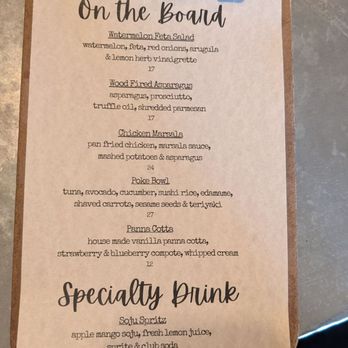 On the Board
Watermelon Feta Salad
watermelon, feta, red onions, arugula
& lemon herb vinaigrette
17
Wood Fired Asparagus
asparagus, prosciutto,
truffle oil, shredded parmesan
17
Chicken Marsala
pan fried chicken, marsala sauce,
mashed potatoes & asparagus
24
Poke Bowl
tuna, avocado, cucumber, sushi rice, edamame,
shaved carrots, sesame seeds & teriyaki
27
Panna Cotta
house made vanilla panna cotta,
strawberry & blueberry compote, whipped cream
12
Specialty Drink
Soju Spritz
apple mango soju, fresh lemon juice,
sprite & club soda